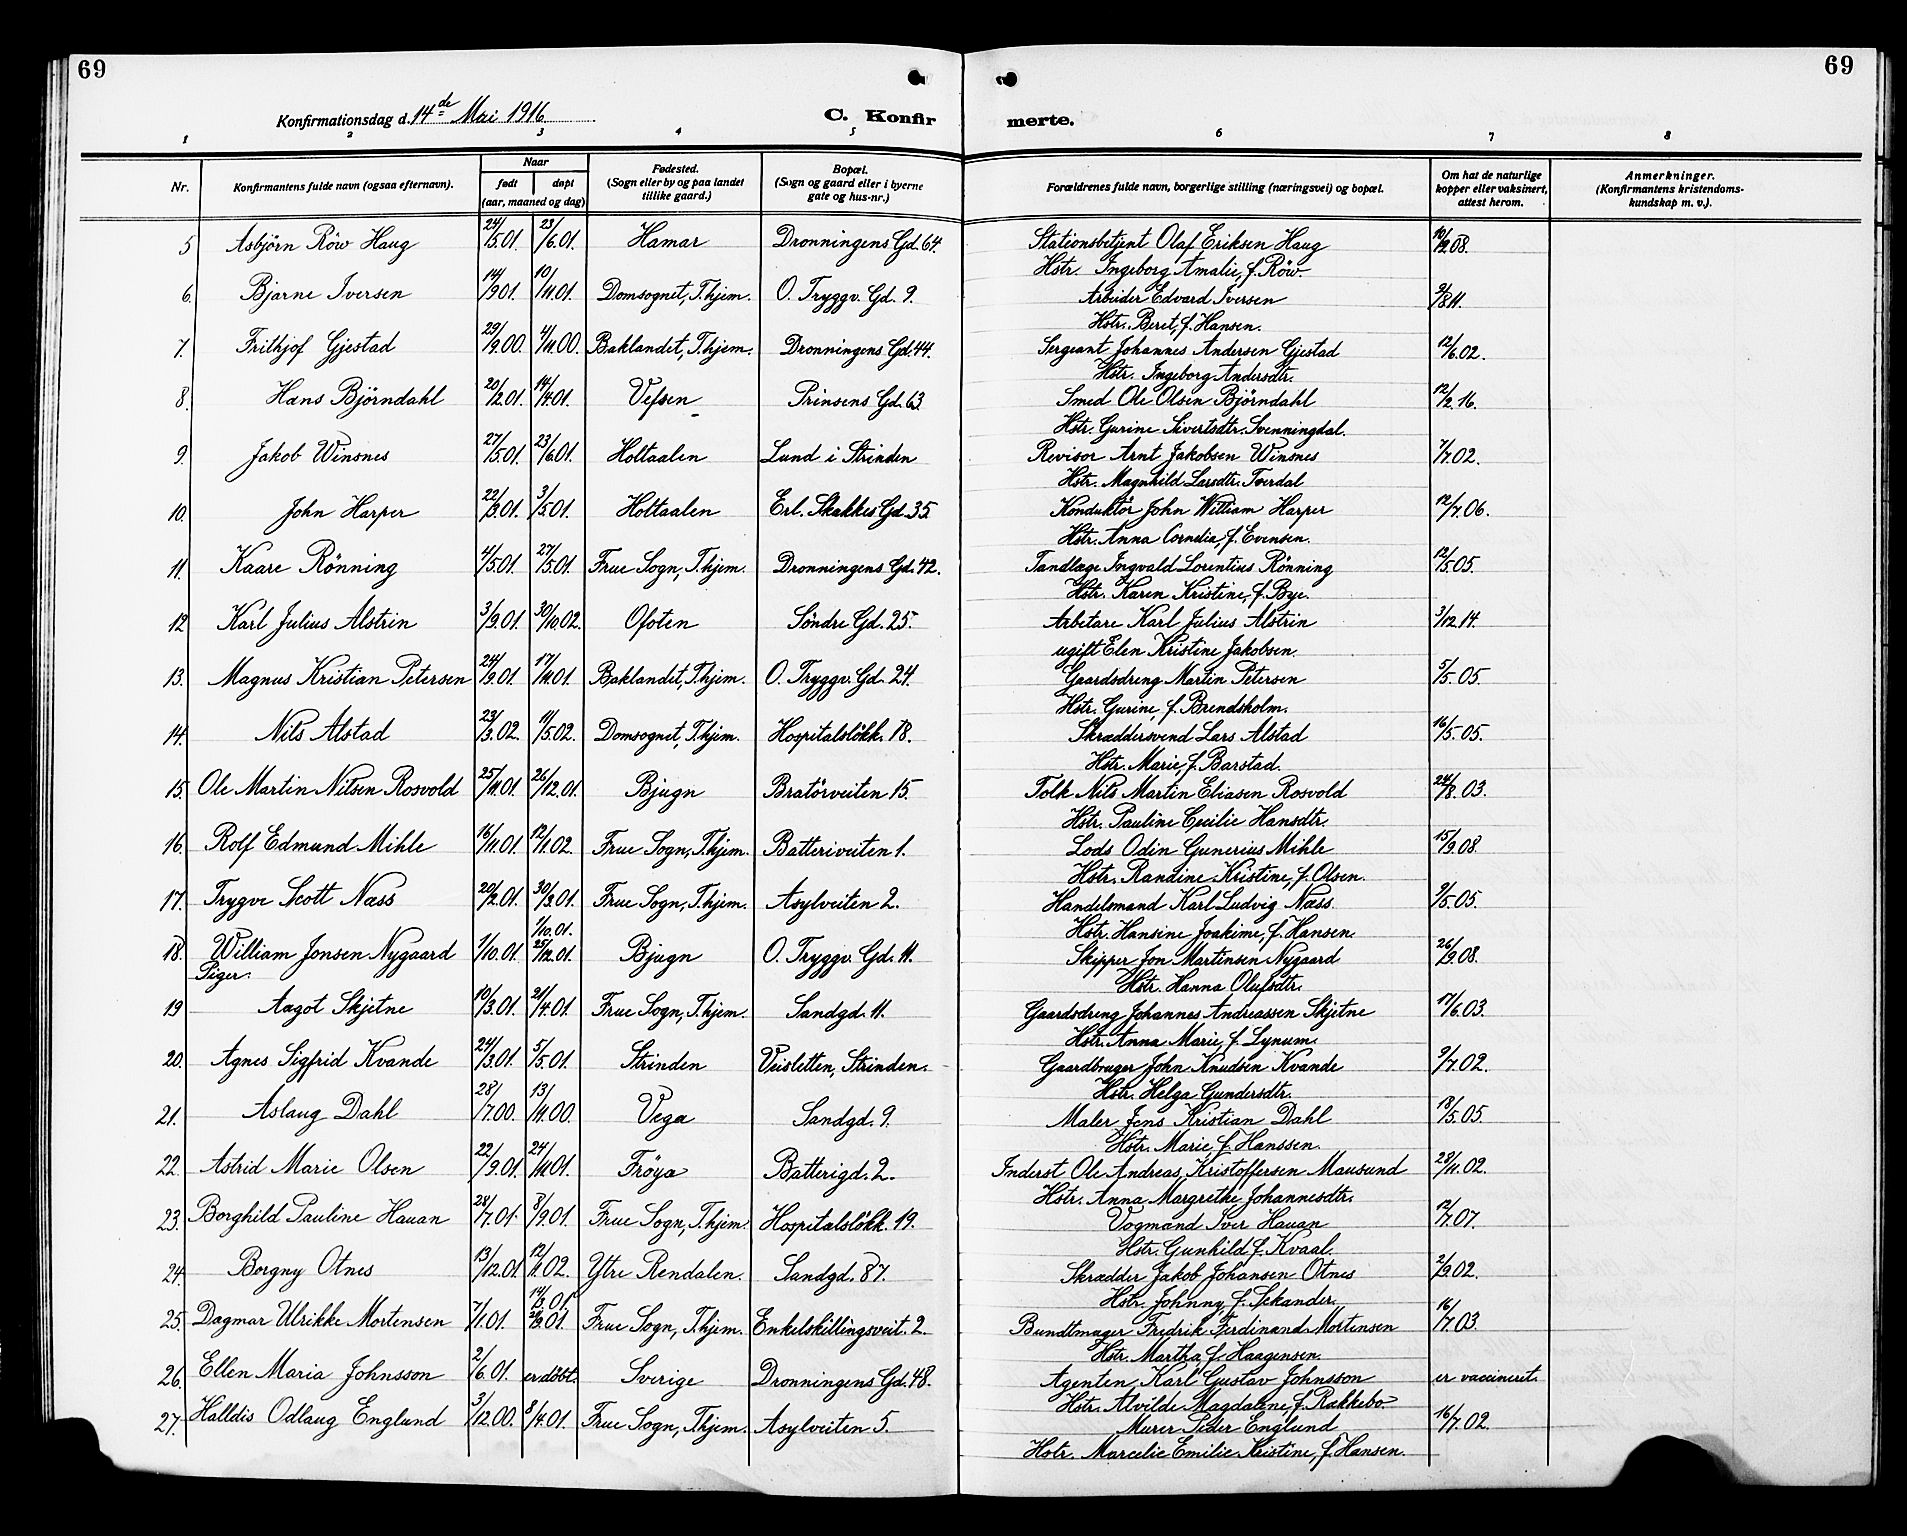 69
69
Konfirmationsdag d. 14de Mai 1916
C. Konfirmerte.
1 2 3 4 5 6 7 8
Nr. Konfirmantens fulde navn (ogsaa efternavn). Naar født døpt (aar, maaned og dag) Fødested. (Sogn eller by og paa landet tillike gaard.) Bopæl. (Sogn og gaard eller i byerne gate og hus-nr.) Forældrenes fulde navn, borgerlige stilling (næringsvei) og bopæl. Om hat de naturlige kopper eller vaksinert, attest herom. Anmerkninger. (Konfirmantens kristendomskundskap m. v.).
5 Asbjörn Röw Haug 24/5.01. 23/6.01. Hamar Dronningens Gd. 64. Stationsbetjent Olaf Eriksen Haug 10/12 08.
Hstr. Ingeborg Amalie, f. Röw
6. Bjarne Iversen 14/9 01. 10/11.01. Domsognet, T.hjem. O. Tryggv. Gd. 9. Arbeider Edvard Iversen 9/8 11.
Hstr. Beret, f. Hansen.
7. Frithjof Gjestad 29/9.00. 4/11.00. Baklandet, T.hjem. Dronningens Gd. 44. Sergeant Johannes Andersen Gjestad 12/6.02.
Hstr. Ingeborg Andersdtr.
8. Hans Björndahl 20/2.01. 14/4.01. Vefsen Prinsens Gd. 63 Smed Ole Olsen Björndahl 12/2.16.
Hstr. Gurine Sivertsdtr. Svenningdal.
9. Jakob Winsnes 27/5.01. 23/6.01. Holtaalen Lund i Strinden Revisor Arnt Jakobsen Winsnes 7/7.02.
Hstr. Magnhild Larsdtr. Tverdal
10. John Harper 22/3.01. 3/5.01. Holtaalen Erl. Skakkes Gd. 35 Konduktör John William Harper 12/7.06.
Hstr. Anna Cornelia, f. Evensen.
11. Kaare Rönning 4/5.01. 27/5.01. Frue Sogn, T.hjem. Dronningens Gd. 42. Tandlæge Ingvald Lorentius Rönning 12/5.05.
Hstr. Karen Kristine, f. Bye.
12 Karl Julius Alstrin 3/9.01. 30/10.02. Ofoten Söndre Gd. 25. Arbetare Karl Julius Alstrin 3/12 14.
ugift Elen Kristine Jakobsen.
13. Magnus Kristian Petersen 24/9.01. 17/11.01. Baklandet, T.hjem. O. Tryggv. Gd. 24. Gaardsdreng Martin Petersen 5/5.05.
Hstr. Gurine, f. Brendsholm.
14. Nils Alstad 23/3.02. 11/5.02. Domsognet, T.hjem. Hospitalslökk. 18. Skræddersvend Lars Alstad 16/5.05.
Hstr. Marie, f. Barstad.
15. Ole Martin Nilsen Rosvold 25/11.01. 26/12.01. Bjugn Bratörveiten 15. Tolk Nils Martin Eliasen Rosvold 24/8.03.
Hstr. Pauline Cecilie Hansdtr.
16. Rolf Edmund Mihle 16/11.01. 12/1.02. Frue Sogn, T.hjem. Batteriveiten 1. Lods Odin Gunerius Mihle 15/9.08.
Hstr. Randine Kristine, f. Olsen.
17. Trygve Scott Næss 20/2.01. 30/3.01. Frue Sogn, T.hjem. Asylveiten 2. Handelsmand Karl Ludvig Næss. 9/5.05.
Hstr. Hansine Joakime, f. Hansen.
18. William Jonsen Nygaard 1/10.01. 1/10.01. 25/12.01. Bjugn O. Tryggv. Gd. 11. Skipper Jon Martinsen Nygaard 26/9.08.
Piger. Hstr. Hanna Olufsdtr.
19 Aagot Skjetne 10/3.01. 21/4.01. Frue Sogn, T.hjem. Sandgd. 11. Gaardsdreng Johannes Andreassen Skjetne 17/6.03.
Hstr. Anna Marie, f. Lynum.
20. Agnes Sigfrid Kvande 24/3.01. 5/5.01. Strinden Veisletten, Strinden. Gaardbruger John Knudsen Kvande 9/7.02.
Hstr. Helga Gundersdtr.
21. Aslaug Dahl 28/7.00. 13/11.00. Vega Sandgd. 9. Maler Jens Kristian Dahl 18/5.05.
Hstr. Marie, f. Hanssen.
22. Astrid Marie Olsen 22/9.01. 24/11.01. Fröya Batterigd. 2. Inderst Ole Andreas Kristoffersen Mausund 28/11.02.
Hstr. Anna Margrethe Johannesdtr.
23. Borghild Pauline Hauan 28/7.01. 8/9.01. Frue Sogn, T.hjem. Hospitalslökk. 19. Vogmand Iver Hauan 12/7.07.
Hstr. Gunhild f. Kvaal.
24. Borgny Otnes 13/12.01. 12/1.02. Ytre Rendalen. Sandgd. 87. Skrædder Jakob Johansen Otnes 2/9.02.
Hstr. Johnny, f. Sekander.
25. Dagmar Ulrikke Mortensen 7/1.01. 14/3.01. 24/3.01. Frue Sogn, T.hjem. Enkelskillingsveit. 2. Bundtmager Fredrik Ferdinand Mortensen 16/7.03.
Hstr. Martha, f. Haagensen.
26. Ellen Maria Johnsson 2/6.01. er döbt. Sverige Dronningens Gd. 48. Agenten Karl Gustav Johnsson er vaccineret.
Hstr. Alvilde Magdalene, f. Rakkebo
27. Halldis Odlaug Englund 3/12.00. 8/4.01. Frue Sogn, T.hjem. Asylveiten 5. Murer Peder Englund 16/7.02.
Hstr. Marcelie Emilie Kristine, f. Hansen.